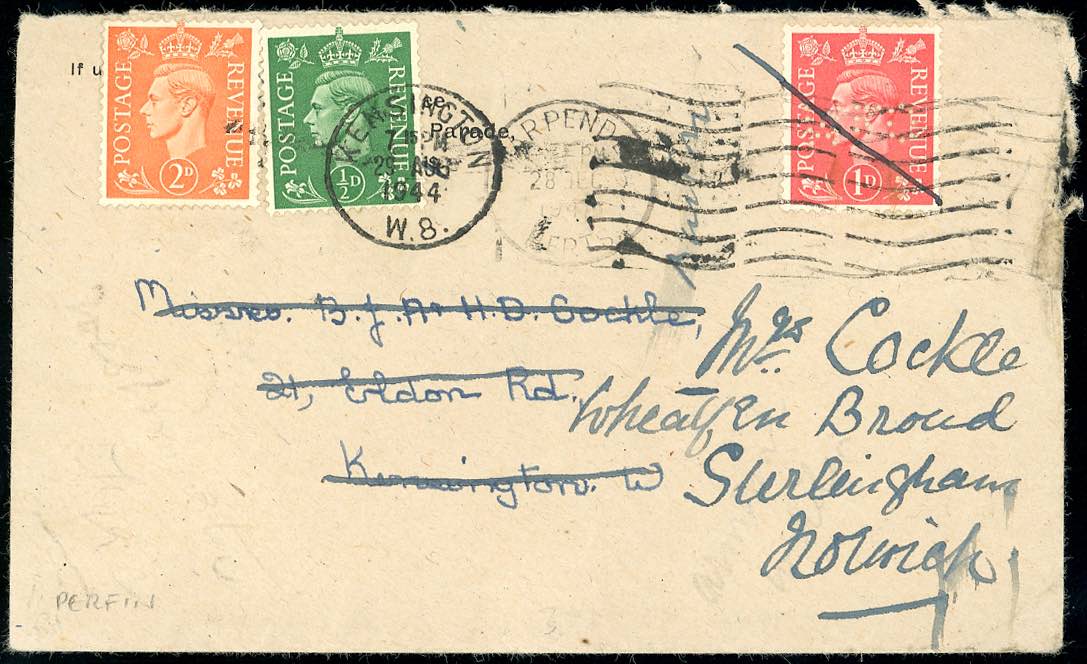 If u
POSTAGE REVENUE 2D
POSTAGE REVENUE ½D
POSTAGE REVENUE 1D
se
Parade,
KENSINGTON
7.15 PM
29 AUG
1944
W.8.
ARPEND
28
HERTS
Messrs. B.J. A H.D. Cockle,
21, Eldon Rd.,
Kensington. W
Mrs. Cockle
Wheatfen Broad
Surlingham
Norwich
PERFIN